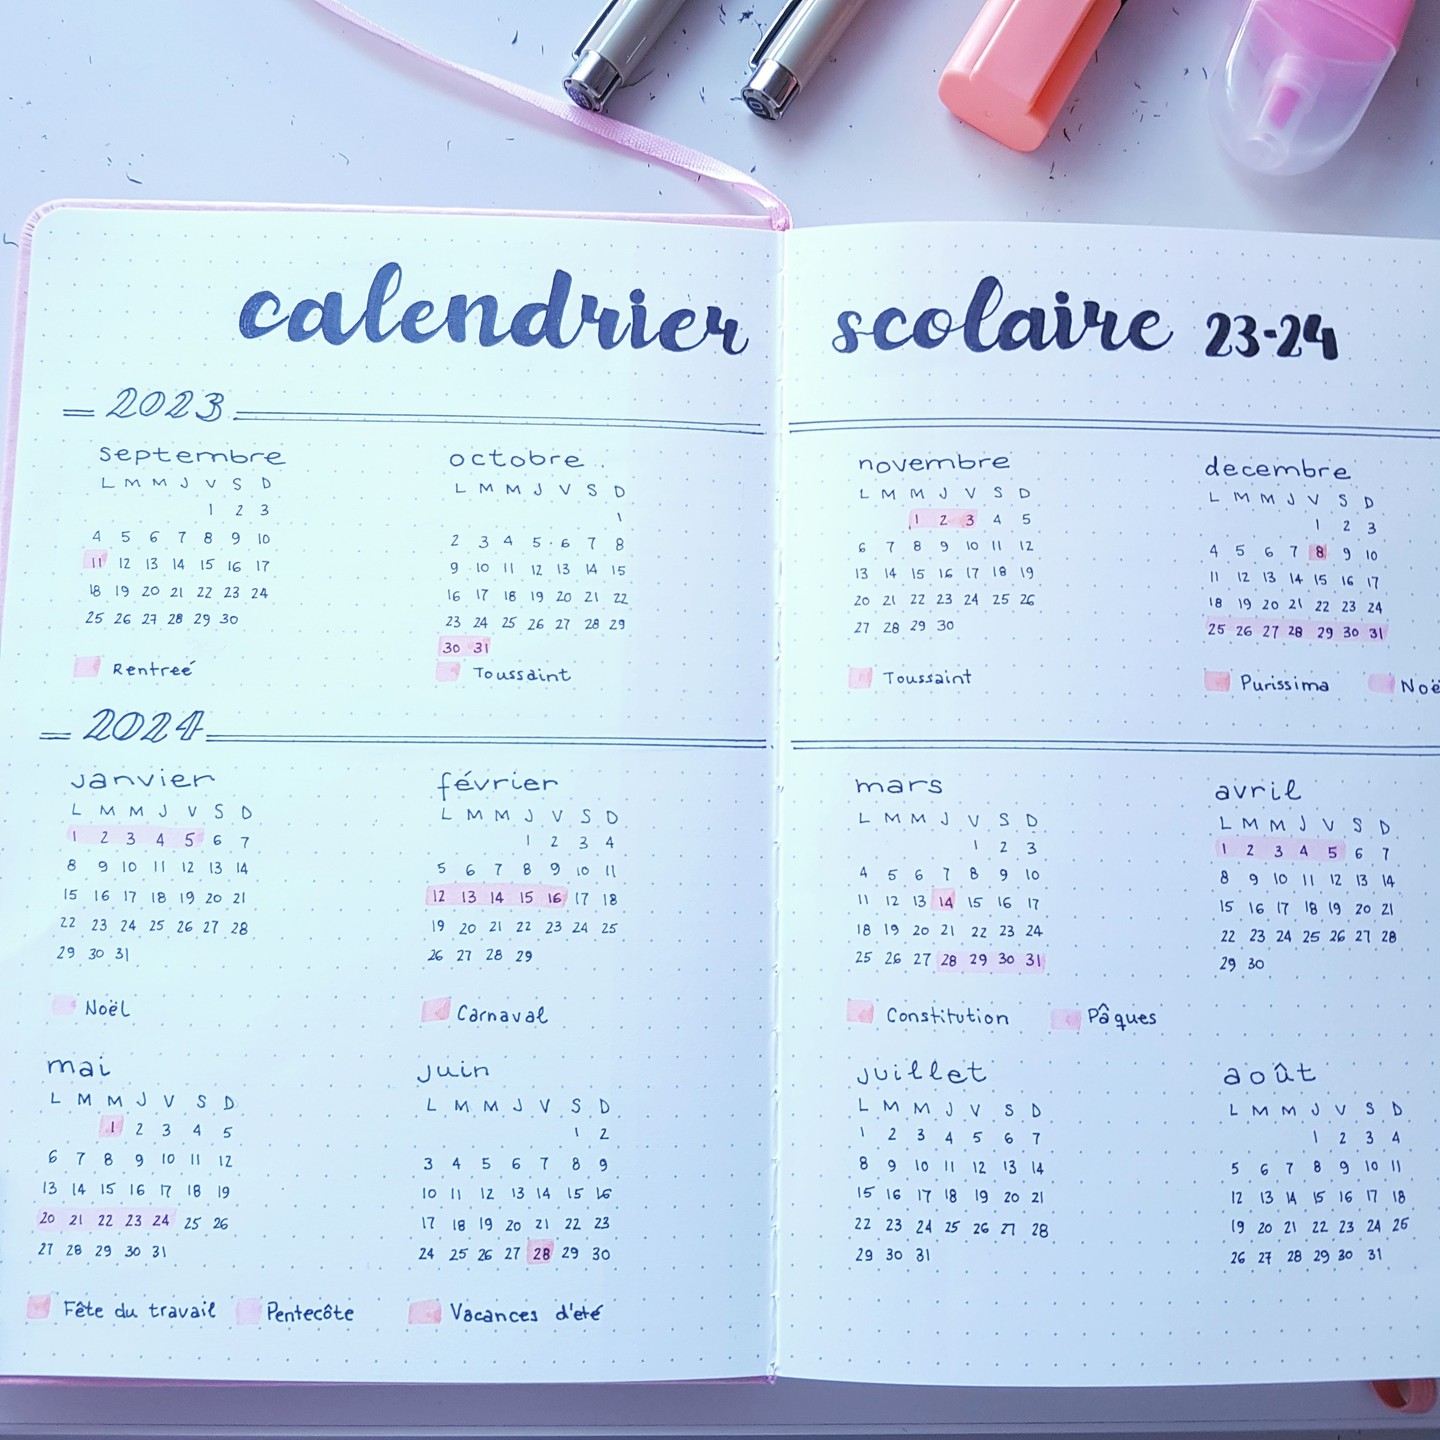 calendrier scolaire 23-24
2023
septembre
L M M J V S D
1 2 3
4 5 6 7 8 9 10
11 12 13 14 15 16 17
18 19 20 21 22 23 24
25 26 27 28 29 30
Rentreé
octobre
L M M J V S D
1
2 3 4 5 6 7 8
9 10 11 12 13 14 15
16 17 18 19 20 21 22
23 24 25 26 27 28 29
30 31
Toussaint
novembre
L M M J V S D
1 2 3 4 5
6 7 8 9 10 11 12
13 14 15 16 17 18 19
20 21 22 23 24 25 26
27 28 29 30
Toussaint
decembre
L M M J V S D
1 2 3
4 5 6 7 8 9 10
11 12 13 14 15 16 17
18 19 20 21 22 23 24
25 26 27 28 29 30 31
Purissima Noë
2024
janvier
L M M J V S D
1 2 3 4 5 6 7
8 9 10 11 12 13 14
15 16 17 18 19 20 21
22 23 24 25 26 27 28
29 30 31
Noël
février
L M M J V S D
1 2 3 4
5 6 7 8 9 10 11
12 13 14 15 16 17 18
19 20 21 22 23 24 25
26 27 28 29
Carnaval
mars
L M M J V S D
1 2 3
4 5 6 7 8 9 10
11 12 13 14 15 16 17
18 19 20 21 22 23 24
25 26 27 28 29 30 31
Constitution Pâques
avril
L M M J V S D
1 2 3 4 5 6 7
8 9 10 11 12 13 14
15 16 17 18 19 20 21
22 23 24 25 26 27 28
29 30
mai
L M M J V S D
1 2 3 4 5
6 7 8 9 10 11 12
13 14 15 16 17 18 19
20 21 22 23 24 25 26
27 28 29 30 31
Fête du travail Pentecôte
juin
L M M J V S D
1 2
3 4 5 6 7 8 9
10 11 12 13 14 15 16
17 18 19 20 21 22 23
24 25 26 27 28 29 30
Vacances d'eté
juillet
L M M J V S D
1 2 3 4 5 6 7
8 9 10 11 12 13 14
15 16 17 18 19 20 21
22 23 24 25 26 27 28
29 30 31
août
L M M J V S D
1 2 3 4
5 6 7 8 9 10 11
12 13 14 15 16 17 18
19 20 21 22 23 24 25
26 27 28 29 30 31